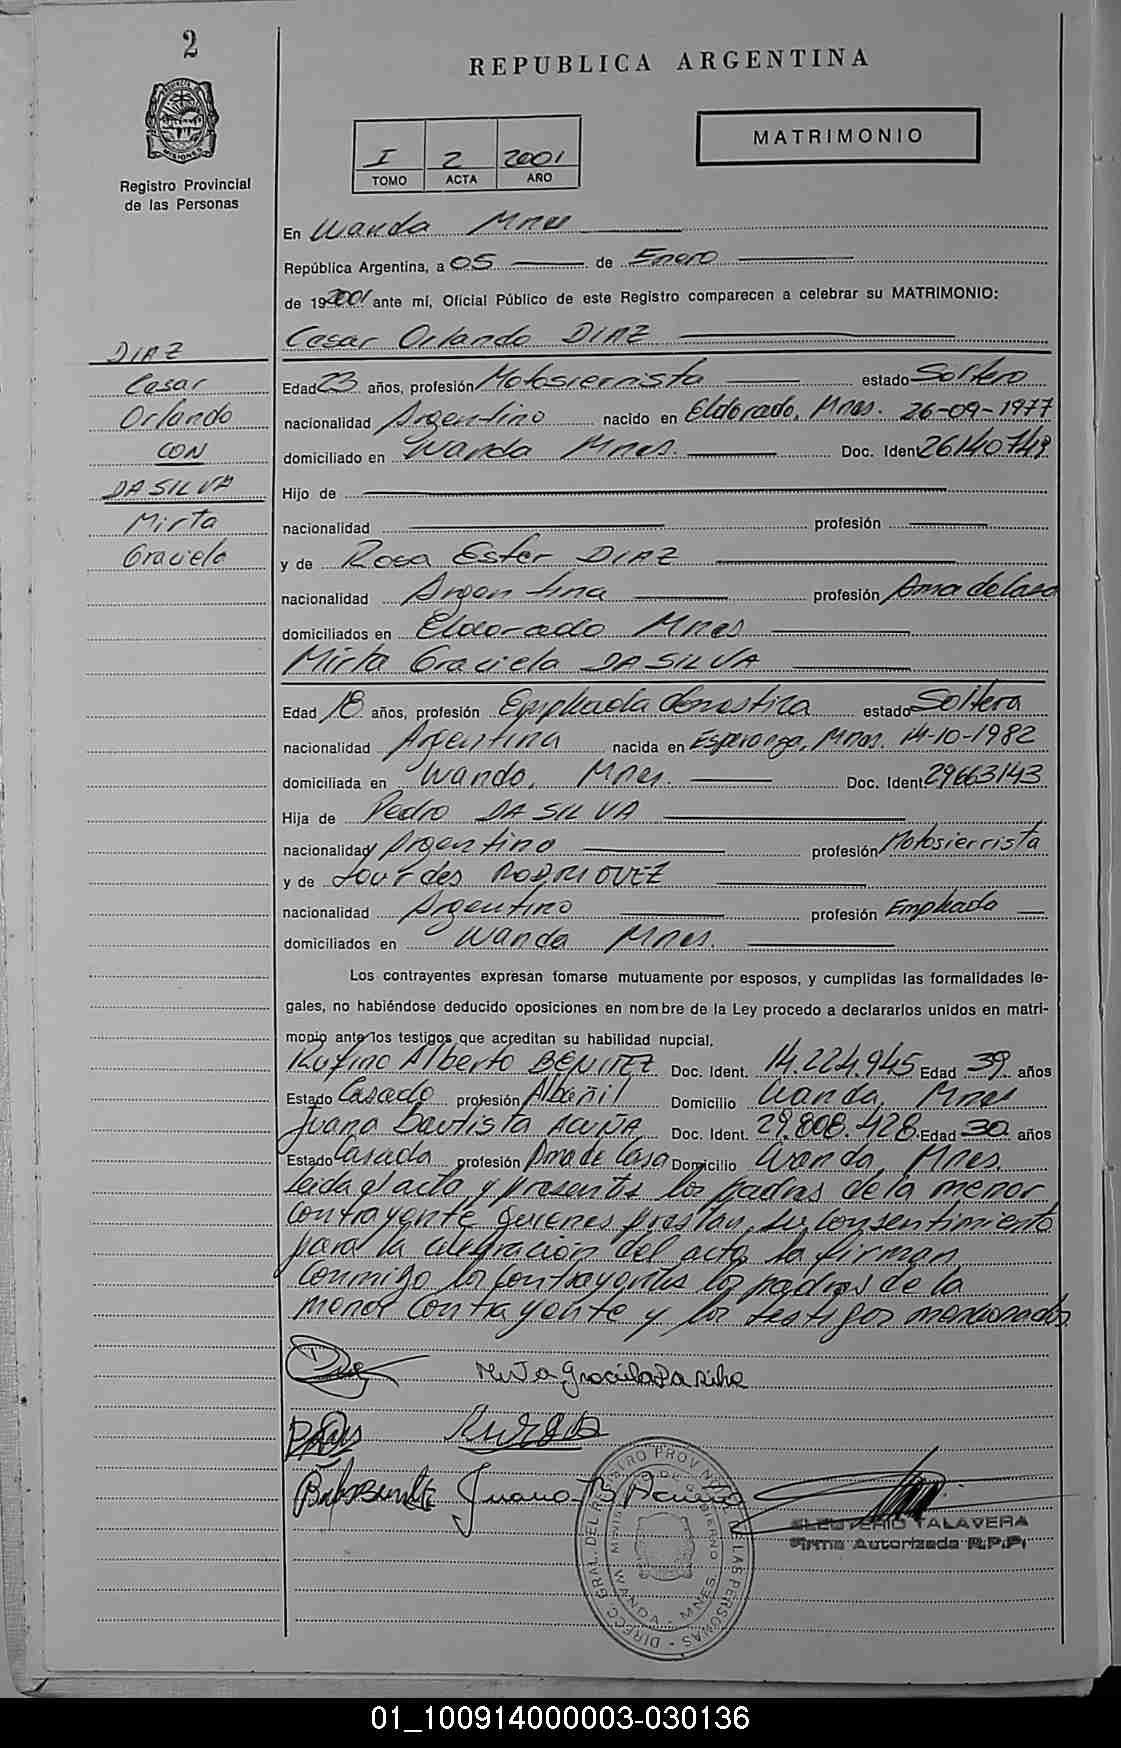 2
REPUBLICA ARGENTINA
MISIONES
Registro Provincial
de las Personas
I 2 2001
TOMO ACTA AÑO
MATRIMONIO
En Wanda Mnes
República Argentina, a 05 de Enero
de 192001 ante mí, Oficial Público de este Registro comparecen a celebrar su MATRIMONIO:
DIAZ
Cesar
Orlando
CON
DA SILVA
Mirta
Graciela
Cesar Orlando DIAZ
Edad 23 años, profesión Motosierrista estado Soltero
nacionalidad Argentino nacido en Eldorado, Mnes. 26-09-1977
domiciliado en Wanda Mnes. Doc. Ident 26140749
Hijo de
nacionalidad profesión
y de Rosa Ester DIAZ
nacionalidad Argentina profesión Ama de Casa
domiciliados en Eldorado Mnes
Mirta Graciela DA SILVA
Edad 18 años, profesión Empleada domestica estado Soltera
nacionalidad Argentina nacida en Esperanza, Mnes. 14-10-1982
domiciliada en Wanda, Mnes. Doc. Ident 29663143
Hija de Pedro DA SILVA
nacionalidad Argentino profesión Motosierrista
y de Lourdes RODRIGUEZ
nacionalidad Argentino profesión Empleada
domiciliados en Wanda Mnes.
Los contrayentes expresan tomarse mutuamente por esposos, y cumplidas las formalidades le-
gales, no habiéndose deducido oposiciones en nombre de la Ley procedo a declararlos unidos en matri-
monio ante los testigos que acreditan su habilidad nupcial.
Rufino Alberto BENITEZ Doc. Ident. 14.224.945 Edad 39 años
Estado Casado profesión Albañil Domicilio Wanda, Mnes
Juana Bautista ACUÑA Doc. Ident. 29.808.428 Edad 30 años
Estado Casada profesión Ama de Casa Domicilio Wanda, Mnes.
Leida el acta y presentes los padres de la menor
contrayente quienes prestan su consentimiento
para la celebración del acto, la firman
conmigo los contrayentes los padres de la
menor contrayente y los testigos mencionados
Mirta Graciela Da silva
Juana B Acuña
DIRECC. GRAL. DEL REGISTRO PROVINCIAL DE LAS PERSONAS
WANDA - MNES.
ELEUTERIO TALAVERA
Firma Autorizada R.P.P.
01_100914000003-030136